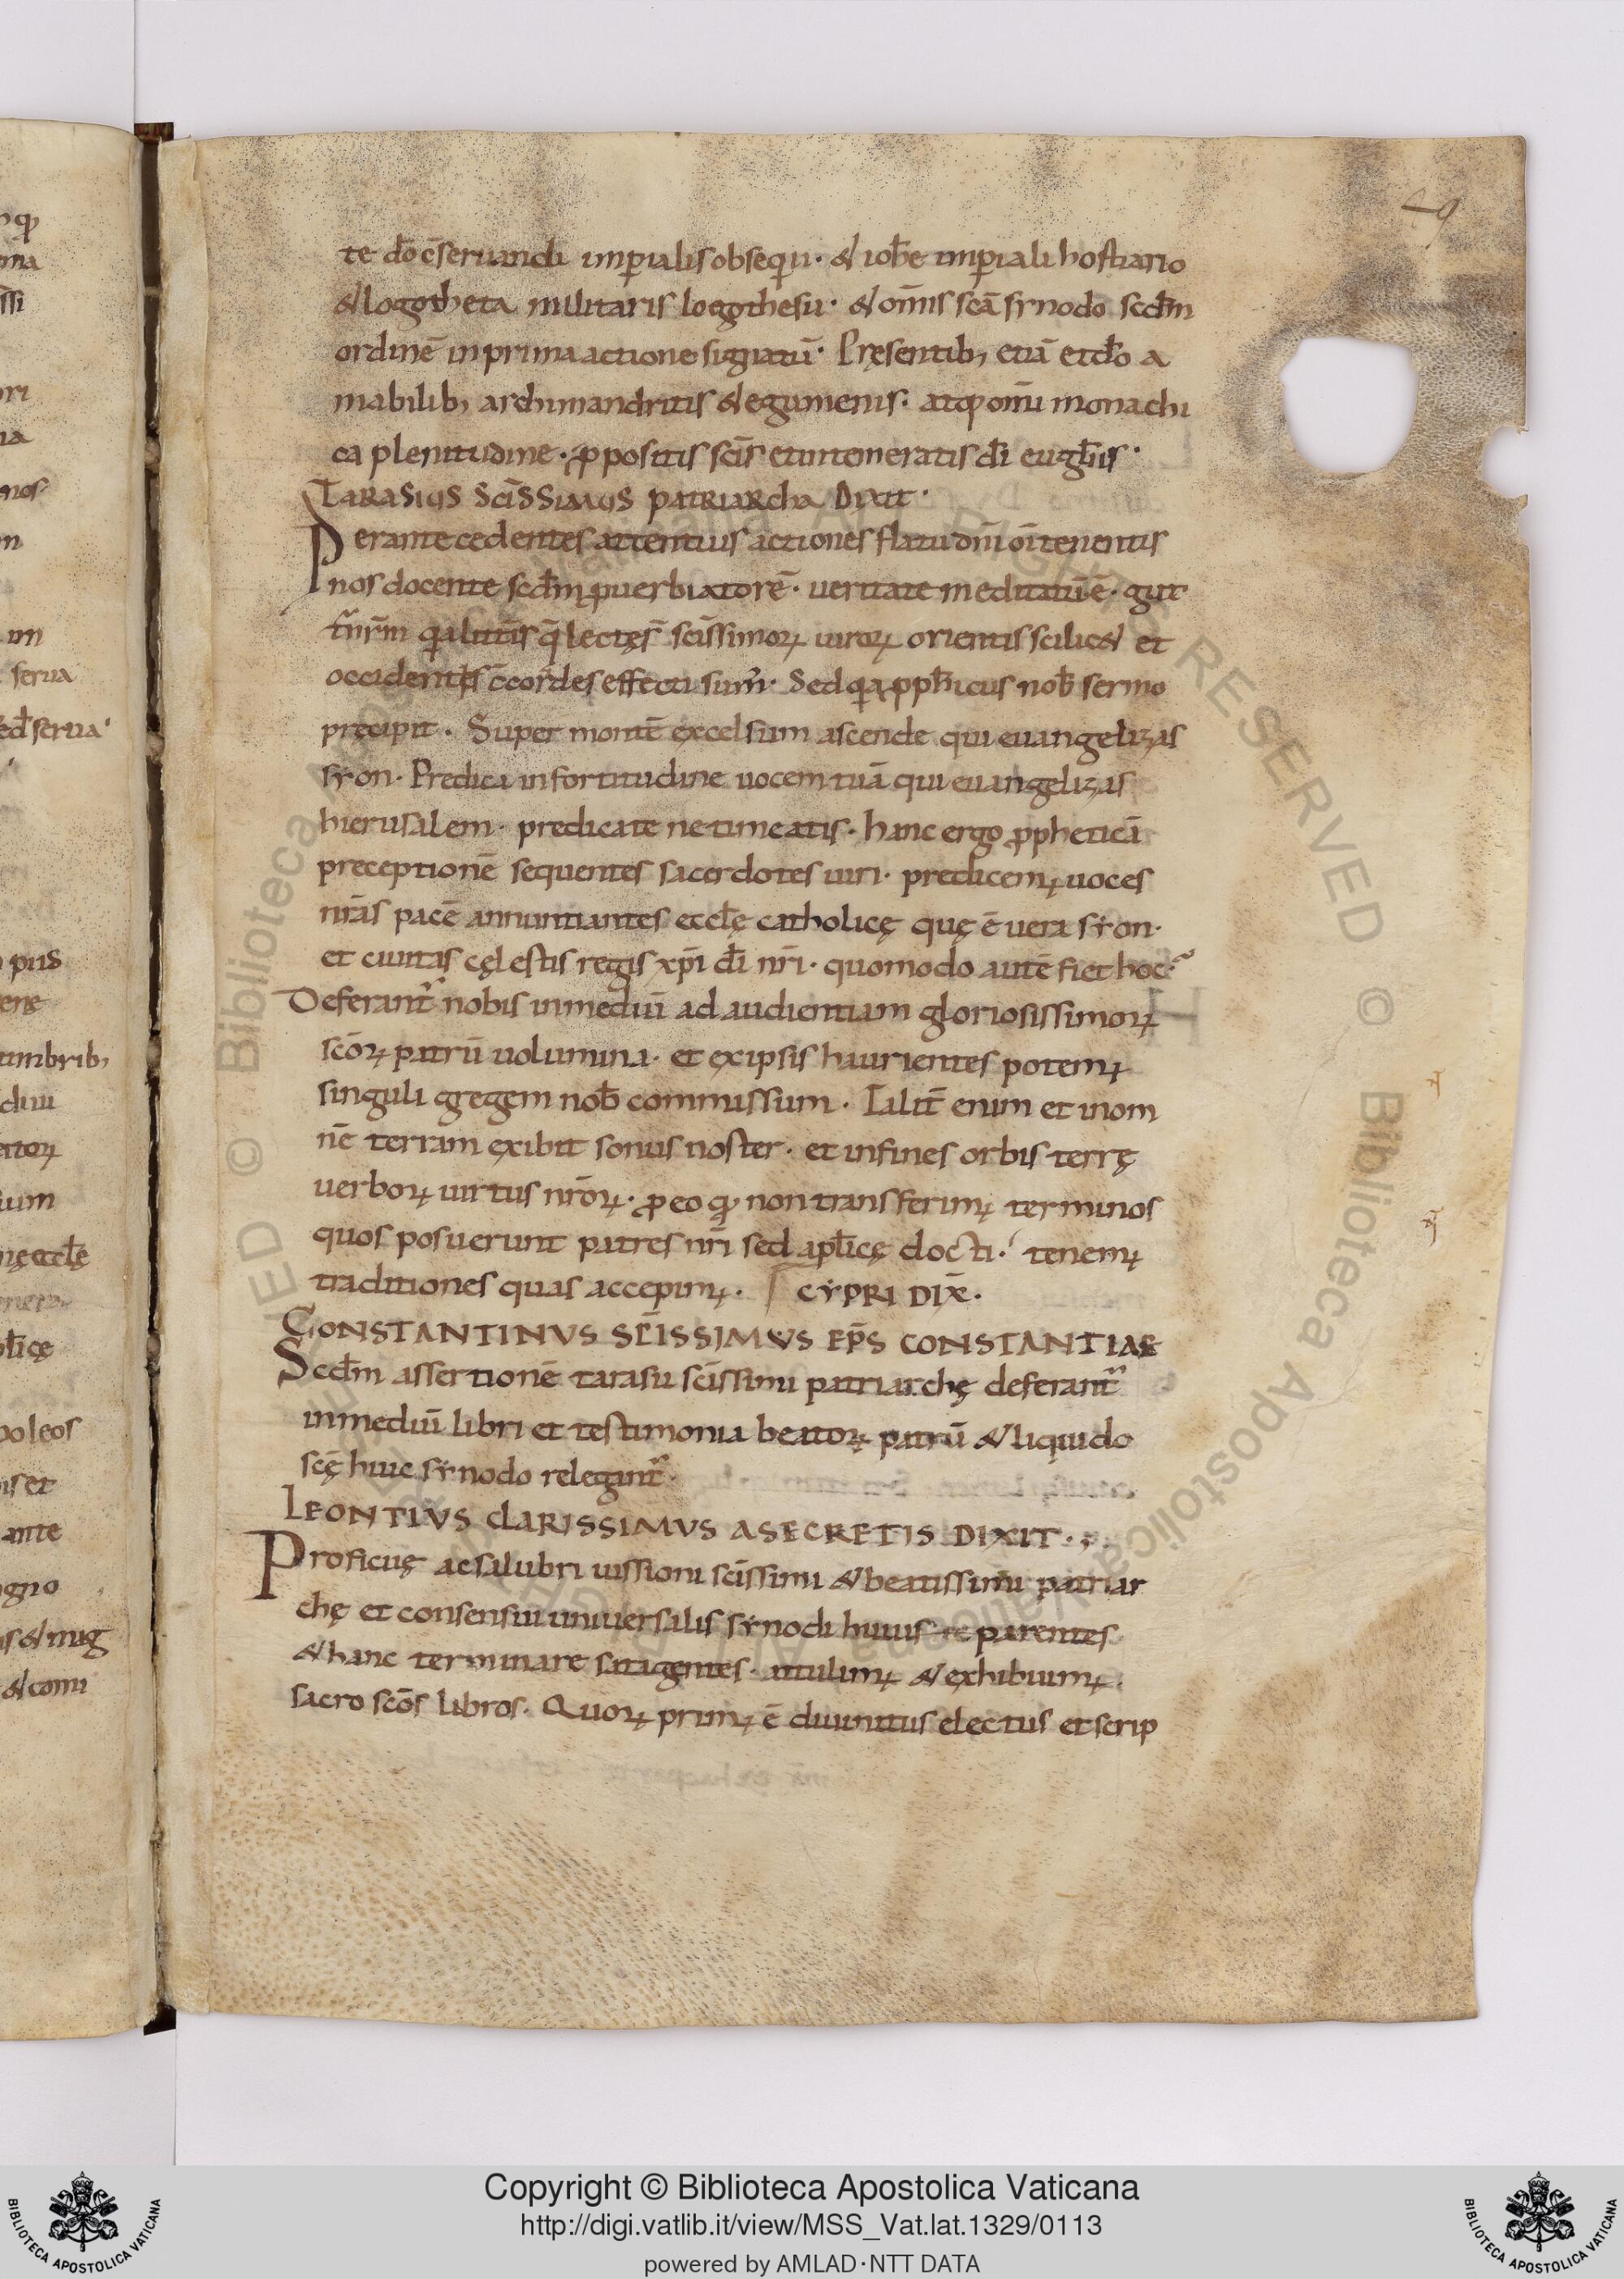 49
te do cseruandi imperialis obsequii· & iohe imperiali hostiario
& logotheta militaris logothesii· & omis sca synodo scdm
ordinē in prima actione signatū· Pręsentib; etiā et do a
mabilib; archimandritis & egumenis· atq; omi monachi
ca plenitudine· ppositis scis et intemeratis di eugliis·
TARASIUS SCISSIMUS PATRIARCHA DIXIT·
Per antecedentes attentius actiones flatu dni oitenentis
nos docente scdm puerbiatorē· ueritate meditatū ē· gut
tur nrm qalitis q lectęs scissimoꝝ uiroꝝ orientis scilic& et
occidentis ccordes effecti sum· Sed qa pphicus nob sermo
pręcipit· Super montē excelsum ascende qui euangelizas
syon· Predica in fortitudine uocem tuā qui euangelizas
hierusalem· predicate ne timeatis· hanc ergo ppheticā
preceptionē sequentes sacerdotes uiri· predicem; uoces
nras pacē annuntiantes ecclę catholicę quę ē uera syon·
et ciuitas cęlestis regis xpi di nri· quomodo autē fiet hoc·
Deferant nobis in mediū ad audientiam gloriosissimoꝝ
scoꝝ patrū uolumina· et ex ipsis haurientes potem;
singuli gregem nob commissum· Talit enim et in om
nē terram exibit sonus noster· et in fines orbis terrę
uerboꝝ uirtus nroꝝ· p eo q non transferim; terminos
quos posuerunt patres nri sed aplicę docti· tenem;
traditiones quas accepim;· CYPRI DIX·
CONSTANTINVS SCISSIMVS EPS CONSTANTIAE
Scdm assertionē tarasii scissimi patriarchę deferant
in mediū libri et testimonia beatoꝝ patrū & liquido
scę huic synodo relegant·
LEONTIVS CLARISSIMVS A SECRETIS DIXIT·
Proficuę ac salubri iussioni scissimi & beatissimi patriar
chę et consensui uniuersalis synodi huius parentes
& hanc terminare satagentes· attulim; & exhibuim;
sacro scos libros· Quoꝝ prim; ē diuinitus electus et scrip
Copyright © Biblioteca Apostolica Vaticana
http://digi.vatlib.it/view/MSS_Vat.lat.1329/0113
powered by AMLAD·NTT DATA
BIBLIOTECA APOSTOLICA VATICANA
BIBLIOTECA APOSTOLICA VATICANA